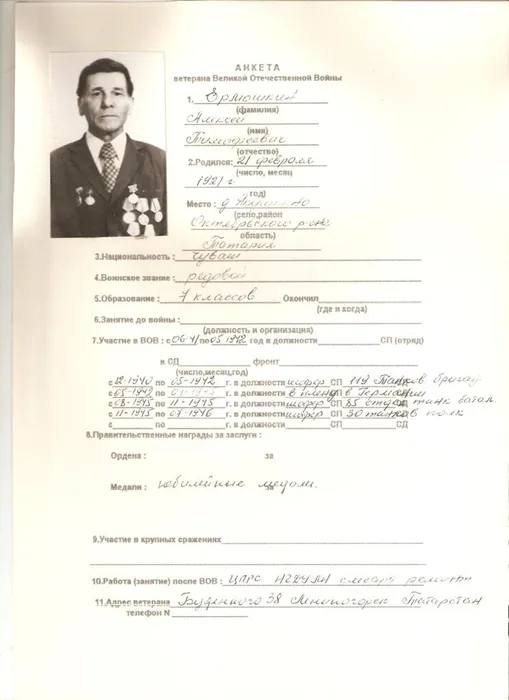 АНКЕТА
ветерана Великой Отечественной Войны
1. Ермошкин
(фамилия)
Алексей
(имя)
Тимофеевич
(отчество)
2.Родился: 21 февраля
(число, месяц
1921 г
год)
Место : д
(село,район
Октябрьского р-на
область)
Татария
3.Национальность : чуваш
4.Воинское звание : редовой
5.Образование : 7 классов Окончил
(где и когда)
6.Занятие до войны :
(должность и организация)
7.Участие в ВОВ : с 06-41 по 05 1942 год в должности СП (отряд)
и СД фронт
(число,месяц,год)
с 12-1940 по 05-1942 г. в должности шофер СП 119 Танков. бригад
с 05-1942 по г. в должности в плену в Германии
с 08-1945 по 11-1945 г. в должности шофер СП 85 отдел танк батал.
с 11-1945 по 07-1946 г. в должности шофер СП 30 танков полк
с по г. в должности СП СД
8.Правительственные награды за заслуги :
Ордена : за
Медали : юбилейные медали. за
9.Участие в крупных сражениях
10.Работа (занятие) после ВОВ : ЦПРС слесарь
11.Адрес ветерана Буденного 38 Лениногорск Татарстан
телефон N